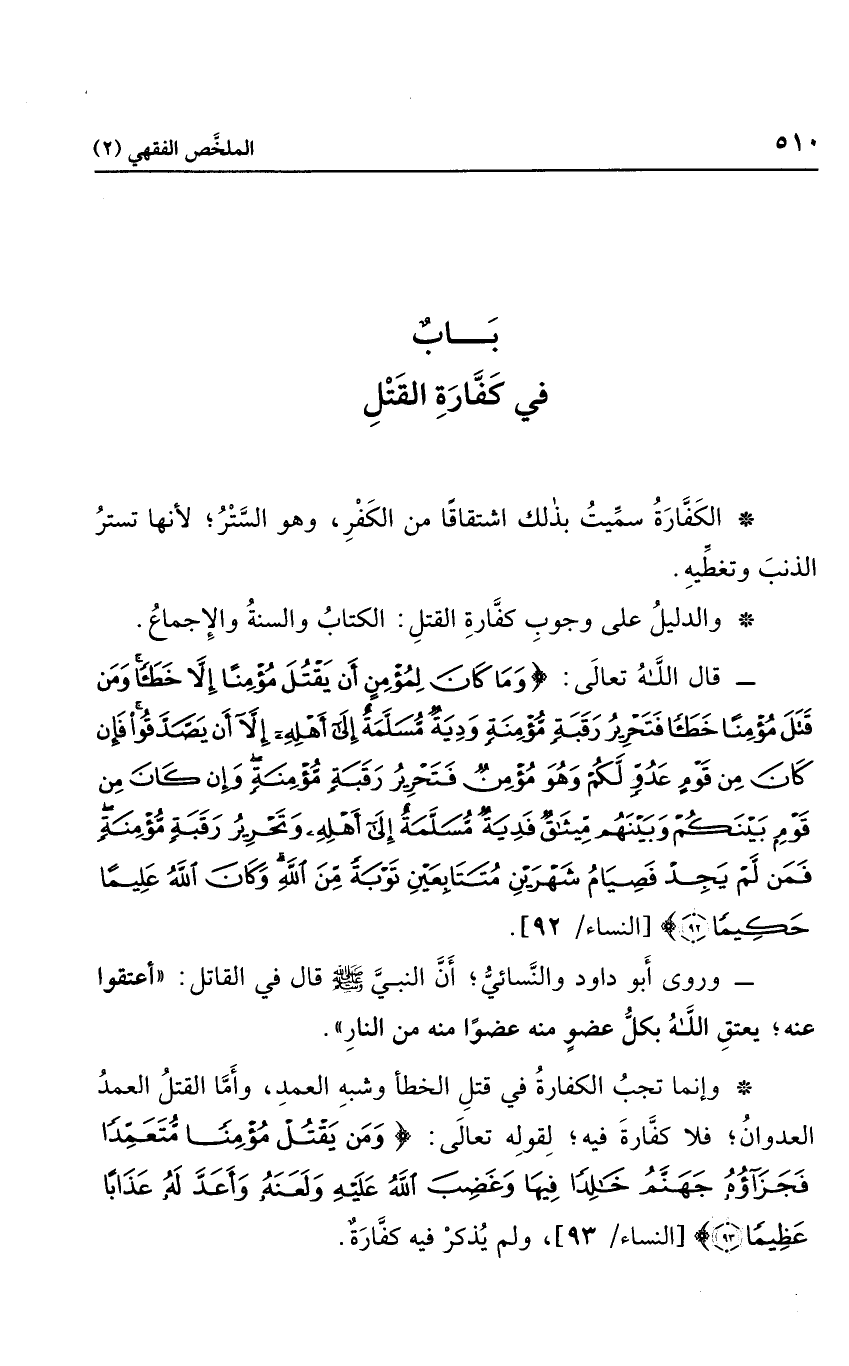 ٥١٠ الملخَّص الفقهي (٢)
بَـــابٌ
في كَفَّارَةِ القَتْلِ
* الكَفَّارَةُ سمِّيتُ بذٰلك اشتقاقًا من الكَفْرِ، وهو السَّتْرُ؛ لأنها تسترُ
الذنبَ وتغطِّيهِ.
* والدليلُ على وجوبِ كفَّارةِ القتلِ: الكتابُ والسنةُ والإِجماعُ.
ــ قال اللَّـٰهُ تعالَى: ﴿وَمَا كَانَ لِمُؤْمِنٍ أَن يَقْتُلَ مُؤْمِنًا إِلَّا خَطَـًٔا ۚ وَمَن
قَتَلَ مُؤْمِنًا خَطَـًٔا فَتَحْرِيرُ رَقَبَةٍ مُّؤْمِنَةٍ وَدِيَةٌ مُّسَلَّمَةٌ إِلَىٰٓ أَهْلِهِۦٓ إِلَّآ أَن يَصَّدَّقُوا۟ ۚ فَإِن
كَانَ مِن قَوْمٍ عَدُوٍّ لَّكُمْ وَهُوَ مُؤْمِنٌ فَتَحْرِيرُ رَقَبَةٍ مُّؤْمِنَةٍ ۖ وَإِن كَانَ مِن
قَوْمٍۭ بَيْنَكُمْ وَبَيْنَهُم مِّيثَـٰقٌ فَدِيَةٌ مُّسَلَّمَةٌ إِلَىٰٓ أَهْلِهِۦ وَتَحْرِيرُ رَقَبَةٍ مُّؤْمِنَةٍ ۖ
فَمَن لَّمْ يَجِدْ فَصِيَامُ شَهْرَيْنِ مُتَتَابِعَيْنِ تَوْبَةً مِّنَ ٱللَّهِ ۗ وَكَانَ ٱللَّهُ عَلِيمًا
حَكِيمًا ۝٩٢﴾ [النساء/ ٩٢].
ــ وروى أَبو داود والنَّسائيُّ؛ أَنَّ النبـيَّ ﷺ قال في القاتل: «أعتقوا
عنه؛ يعتقِ اللَّـٰهُ بكلُّ عضوٍ منه عضوًا منه من النارِ».
* وإنما تجبُ الكفارةُ في قتلِ الخطأ وشبهِ العمدِ، وأَمَّا القتلُ العمدُ
العدوانُ؛ فلا كفَّارةَ فيه؛ لِقولِه تعالَى: ﴿وَمَن يَقْتُلْ مُؤْمِنًا مُّتَعَمِّدًا
فَجَزَآؤُهُۥ جَهَنَّمُ خَـٰلِدًا فِيهَا وَغَضِبَ ٱللَّهُ عَلَيْهِ وَلَعَنَهُۥ وَأَعَدَّ لَهُۥ عَذَابًا
عَظِيمًا ۝٩٣﴾ [النساء/ ٩٣]، ولم يُذكرْ فيه كفَّارَةٌ.